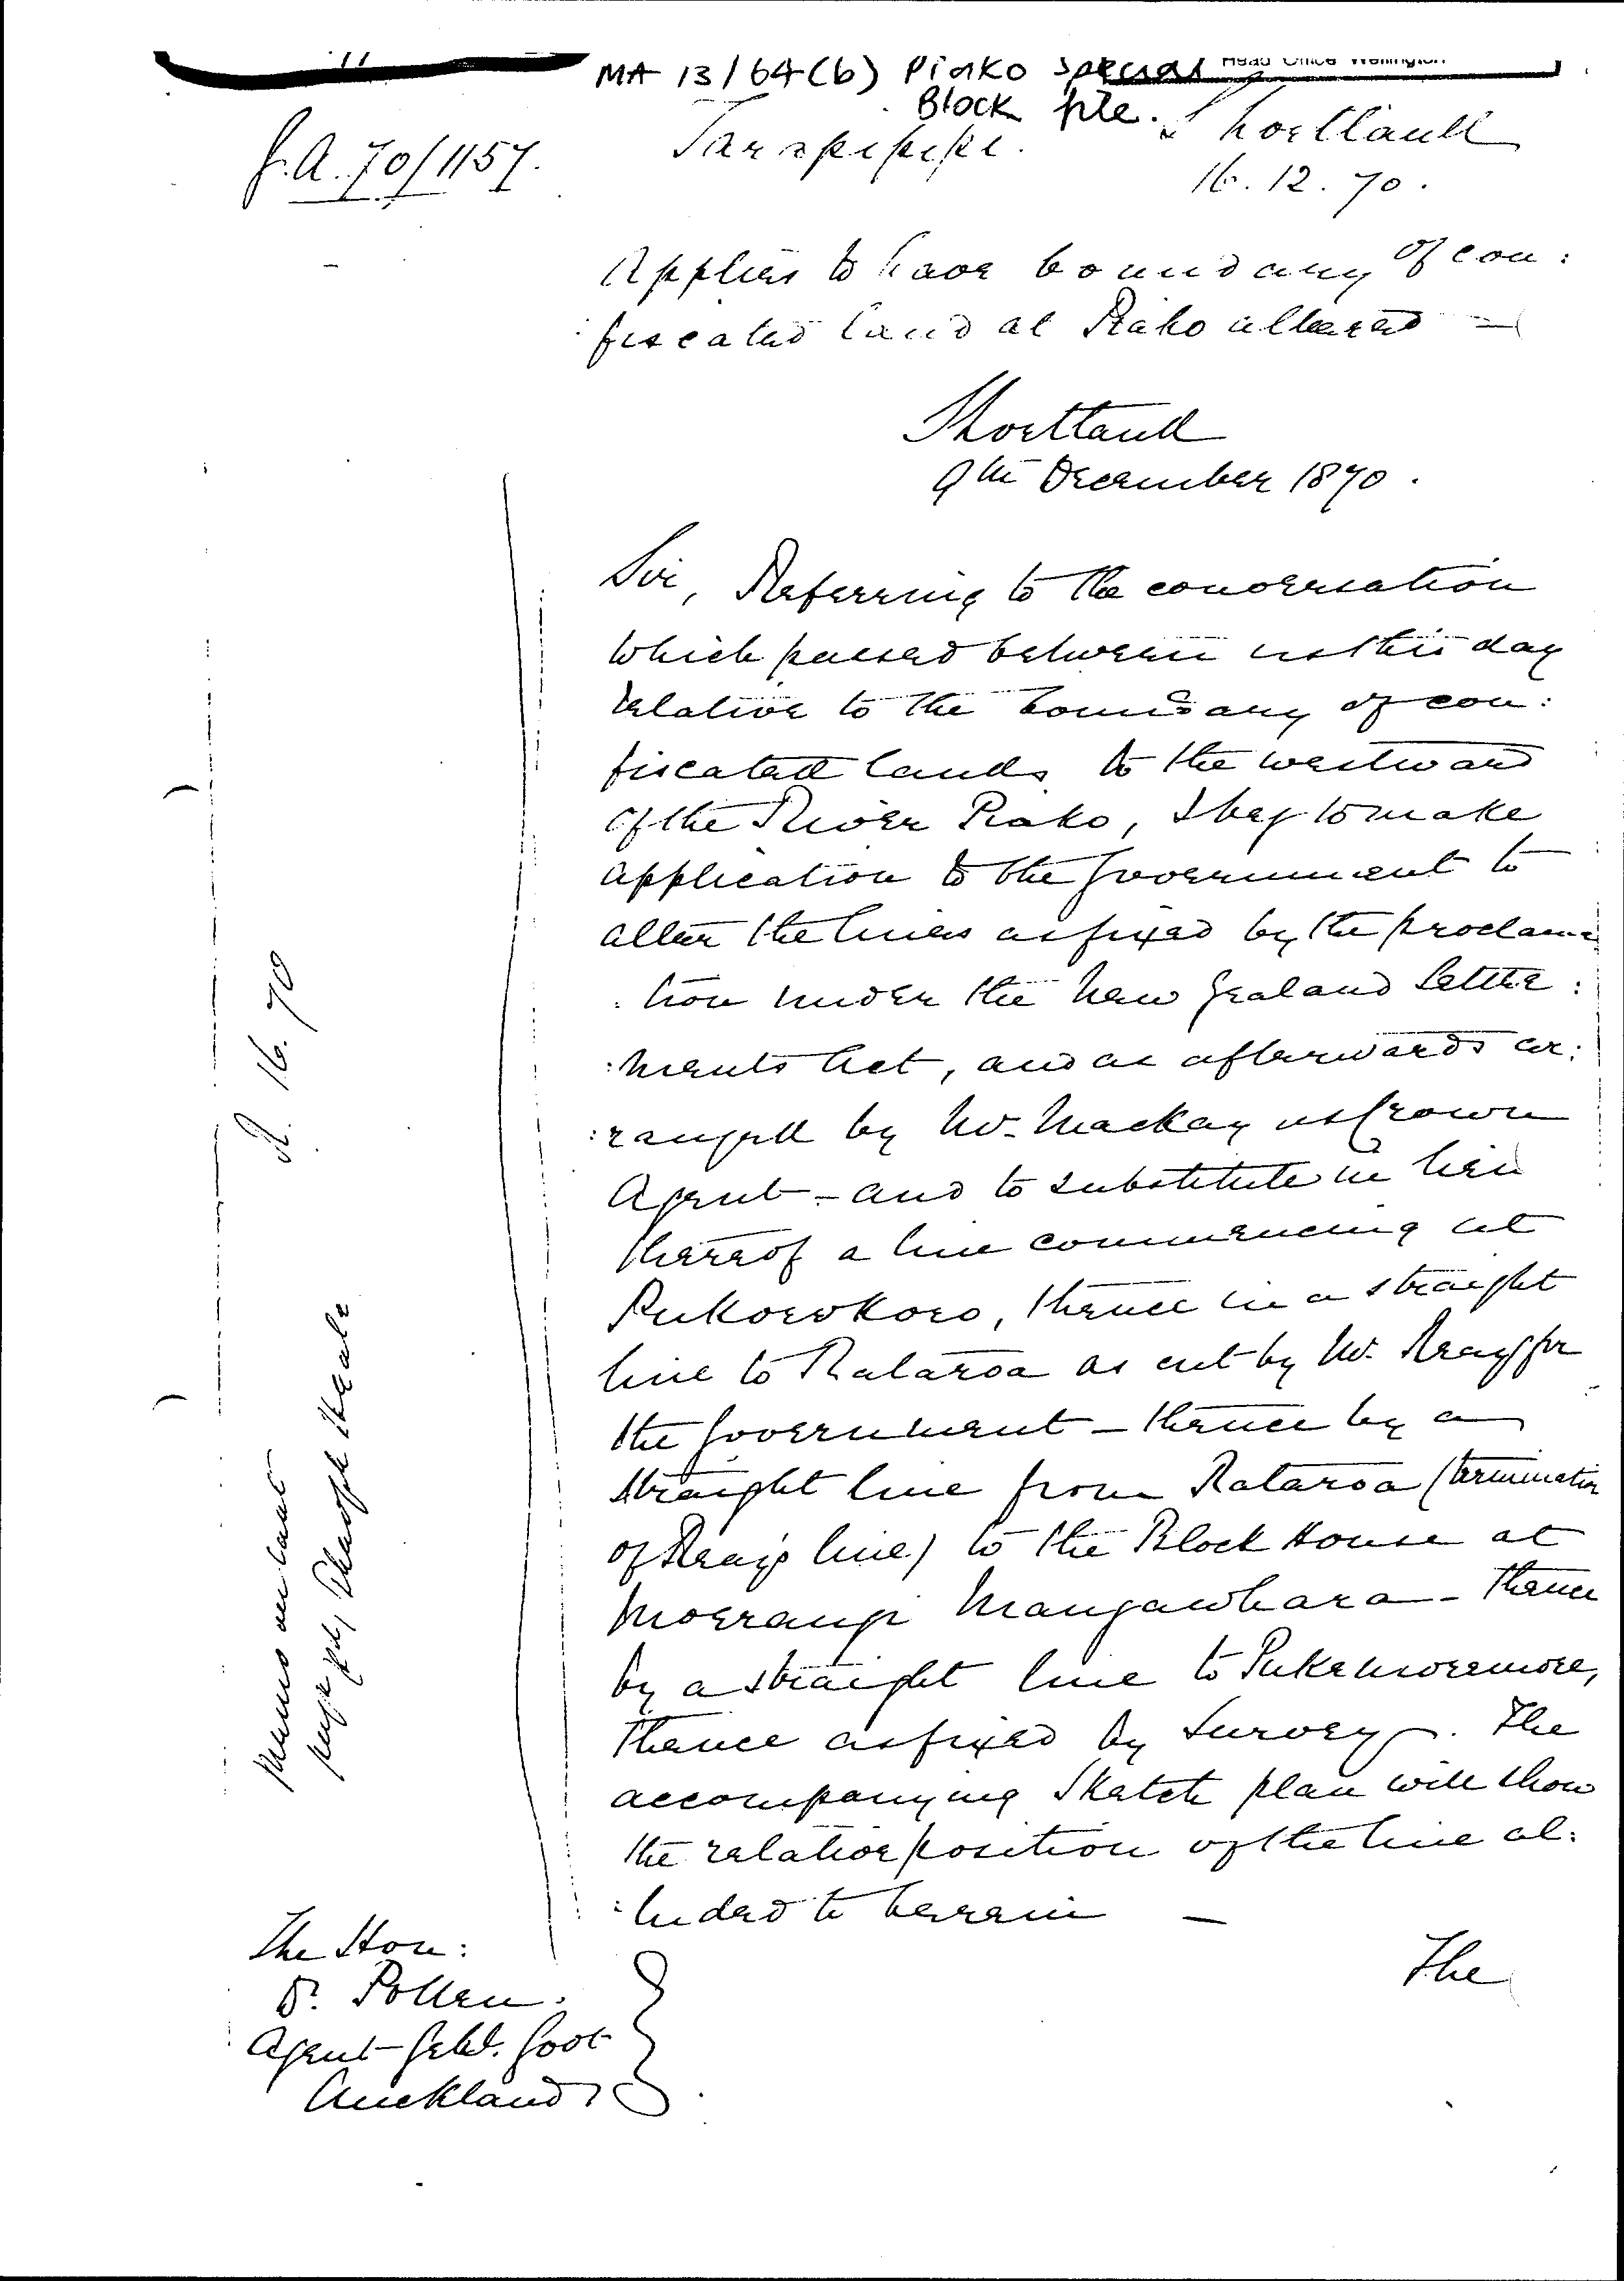 Head Office Wellington
MA 13/64(b) Piako Special
Block file.
J.A. 70/1157.
Tarapipipi.
Shortland
16. 12. 70.
Applies to have boundary of con:
:fiscated land at Piako altered —
Shortland
9th December 1870.
Sir, Referring to the conversation
which passed between us this day
relative to the boundary of con:
fiscated lands to the westward
of the River Piako, I beg to make
application to the Government to
alter the lines as fixed by the proclama
:tion under the New Zealand Settle:
:ments Act, and as afterwards ar:
:ranged by Mr. Mackay as Crown
Agent – and to substitute in lieu
thereof a line commencing at
Pukorokoro, thence in a straight
line to Rataroa as cut by Mr. for
the Government – thence by a
straight line from Rataroa (termination
of line) to the Block House at
Moerangi Mangawhara – thence
by a straight line to Pukemoremore,
thence as fixed by Survey. The
accompanying Sketch plan will show
the relative position of the line al:
:luded to herein —
The
The Hon:
Dr. Pollen.
Agent Genl. Govt
Auckland
R. 16. 70
Memo on last
page by Theoph Heale